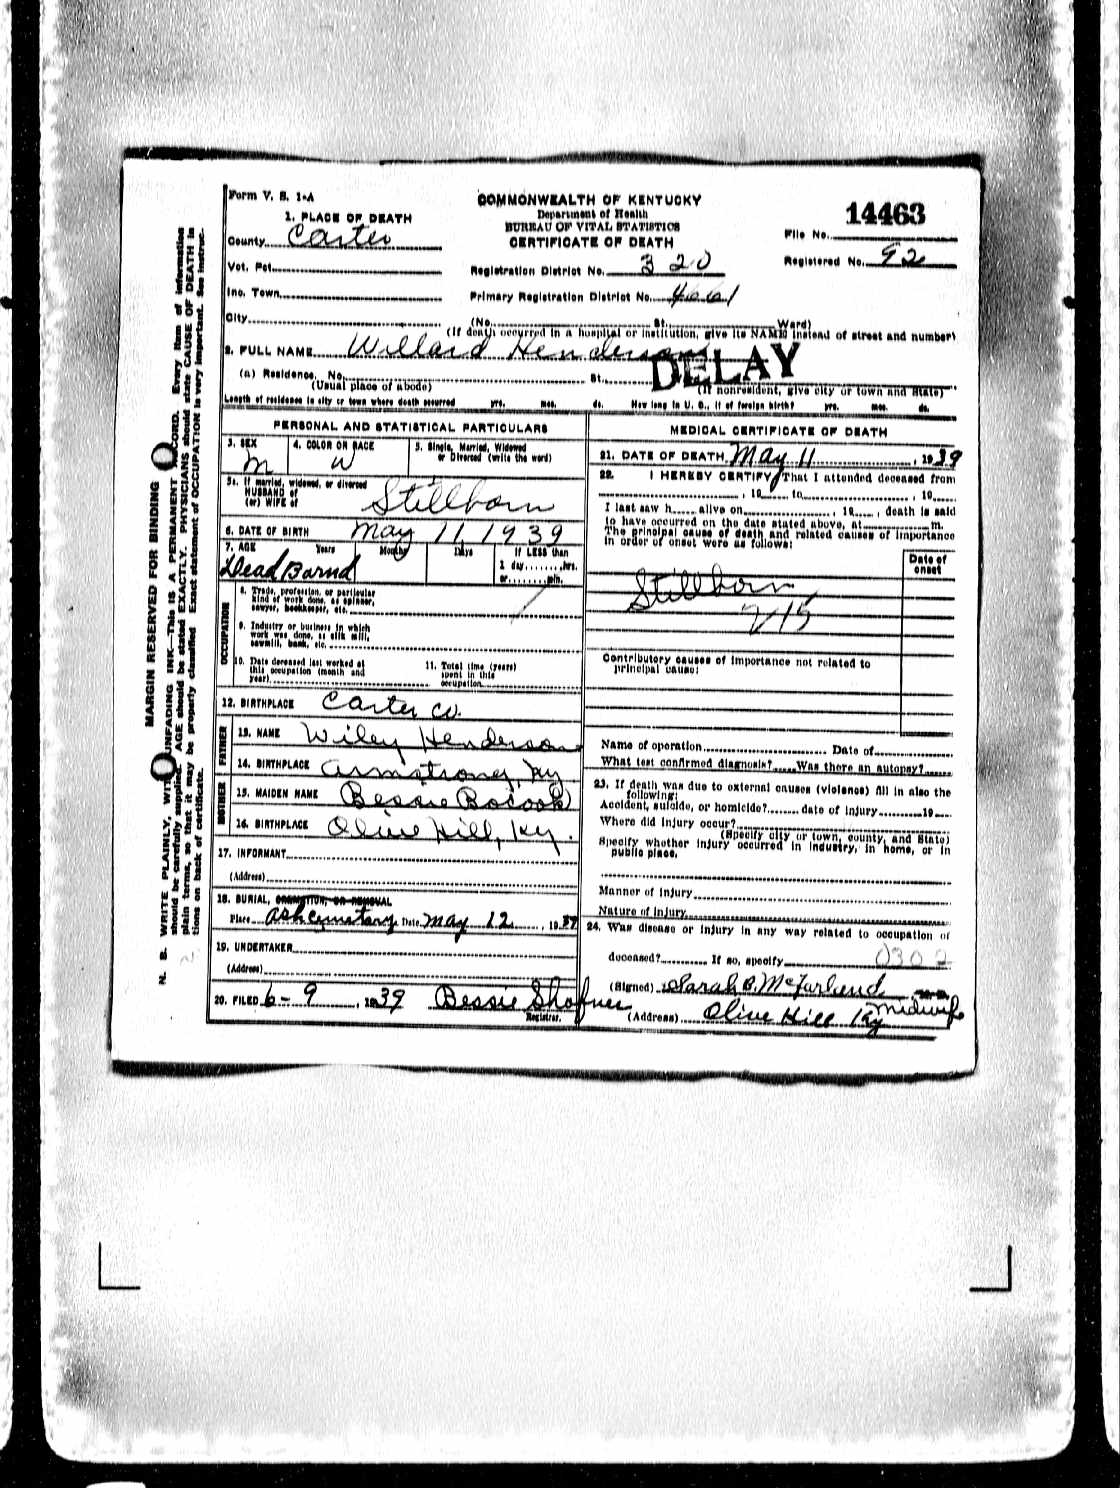 Form V. S. 1-A
COMMONWEALTH OF KENTUCKY
Department of Health
BUREAU OF VITAL STATISTICS
CERTIFICATE OF DEATH
14463
File No.
Registered No. 92
1. PLACE OF DEATH
County Carter
Vot. Pct.
Inc. Town
City
Registration District No. 320
Primary Registration District No. 4661
(No. St. Ward)
(If death occurred in a hospital or institution, give its NAME instead of street and number)
2. FULL NAME Willard Henderson
DELAY
(a) Residence, No. St.
(Usual place of abode) (If nonresident, give city or town and State)
Length of residence in city or town where death occurred yrs. mos. ds. How long in U. S., if of foreign birth? yrs. mos. ds.
PERSONAL AND STATISTICAL PARTICULARS
3. SEX m
4. COLOR OR RACE W
5. Single, Married, Widowed
or Divorced (write the word)
5a. If married, widowed, or divorced
HUSBAND of
(or) WIFE of
Stillborn
6. DATE OF BIRTH May 11, 1939
7. AGE Years Months Days If LESS than
1 day ........hrs.
or ........min.
Dead Barnd
OCCUPATION
8. Trade, profession, or particular
kind of work done, as spinner,
sawyer, bookkeeper, etc.
9. Industry or business in which
work was done, as silk mill,
sawmill, bank, etc.
10. Date deceased last worked at
this occupation (month and
year)
11. Total time (years)
spent in this
occupation
12. BIRTHPLACE Carter Co.
FATHER
13. NAME Wiley Henderson
14. BIRTHPLACE Armstrong, Ky
MOTHER
15. MAIDEN NAME Bessie Bocook
16. BIRTHPLACE Olive Hill, Ky.
17. INFORMANT
(Address)
18. BURIAL, CREMATION, OR REMOVAL
Place Ash Cemetary Date May 12, 1939
19. UNDERTAKER
(Address)
20. FILED 6-9, 1939 Bessie Shafner
Registrar.
MEDICAL CERTIFICATE OF DEATH
21. DATE OF DEATH May 11, 1939
22. I HEREBY CERTIFY, That I attended deceased from
, 19 to , 19
I last saw h alive on , 19 , death is said
to have occurred on the date stated above, at m.
The principal cause of death and related causes of importance
in order of onset were as follows:
Date of
onset
Stillborn
Contributory causes of importance not related to
principal cause:
Name of operation Date of
What test confirmed diagnosis? Was there an autopsy?
23. If death was due to external causes (violence) fill in also the
following:
Accident, suicide, or homicide? date of injury 19
Where did injury occur?
(Specify city or town, county, and State)
Specify whether injury occurred in industry, in home, or in
public place.
Manner of injury
Nature of injury
24. Was disease or injury in any way related to occupation of
deceased? If so, specify
0302
(Signed) Sarah B. McFarland
Midwife
(Address) Olive Hill Ky
MARGIN RESERVED FOR BINDING
N. B. WRITE PLAINLY, WITH UNFADING INK—THIS IS A PERMANENT RECORD. Every item of information
should be carefully supplied. AGE should be stated EXACTLY. PHYSICIANS should state CAUSE OF DEATH in
plain terms, so that it may be properly classified. Exact statement of OCCUPATION is very important. See instruc-
tions on back of certificate.